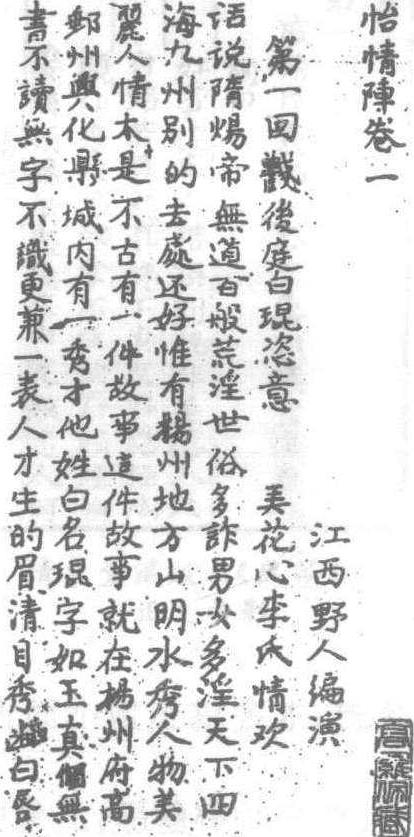 怡情陣卷一
江西野人编演
第一回戲後庭白琨恣意 弄花心李氏情欢
话说隋煬帝無道百般荒淫世俗多詐男女多淫天下四
海九州别的去處还好惟有楊州地方山明水秀人物美
麗人情太是不古有一件故事這件故事就在楊州府高
郵州興化縣城内有一秀才他姓白名琨字如玉真個無
書不讀無字不識更兼一表人才生的眉清目秀齒白唇